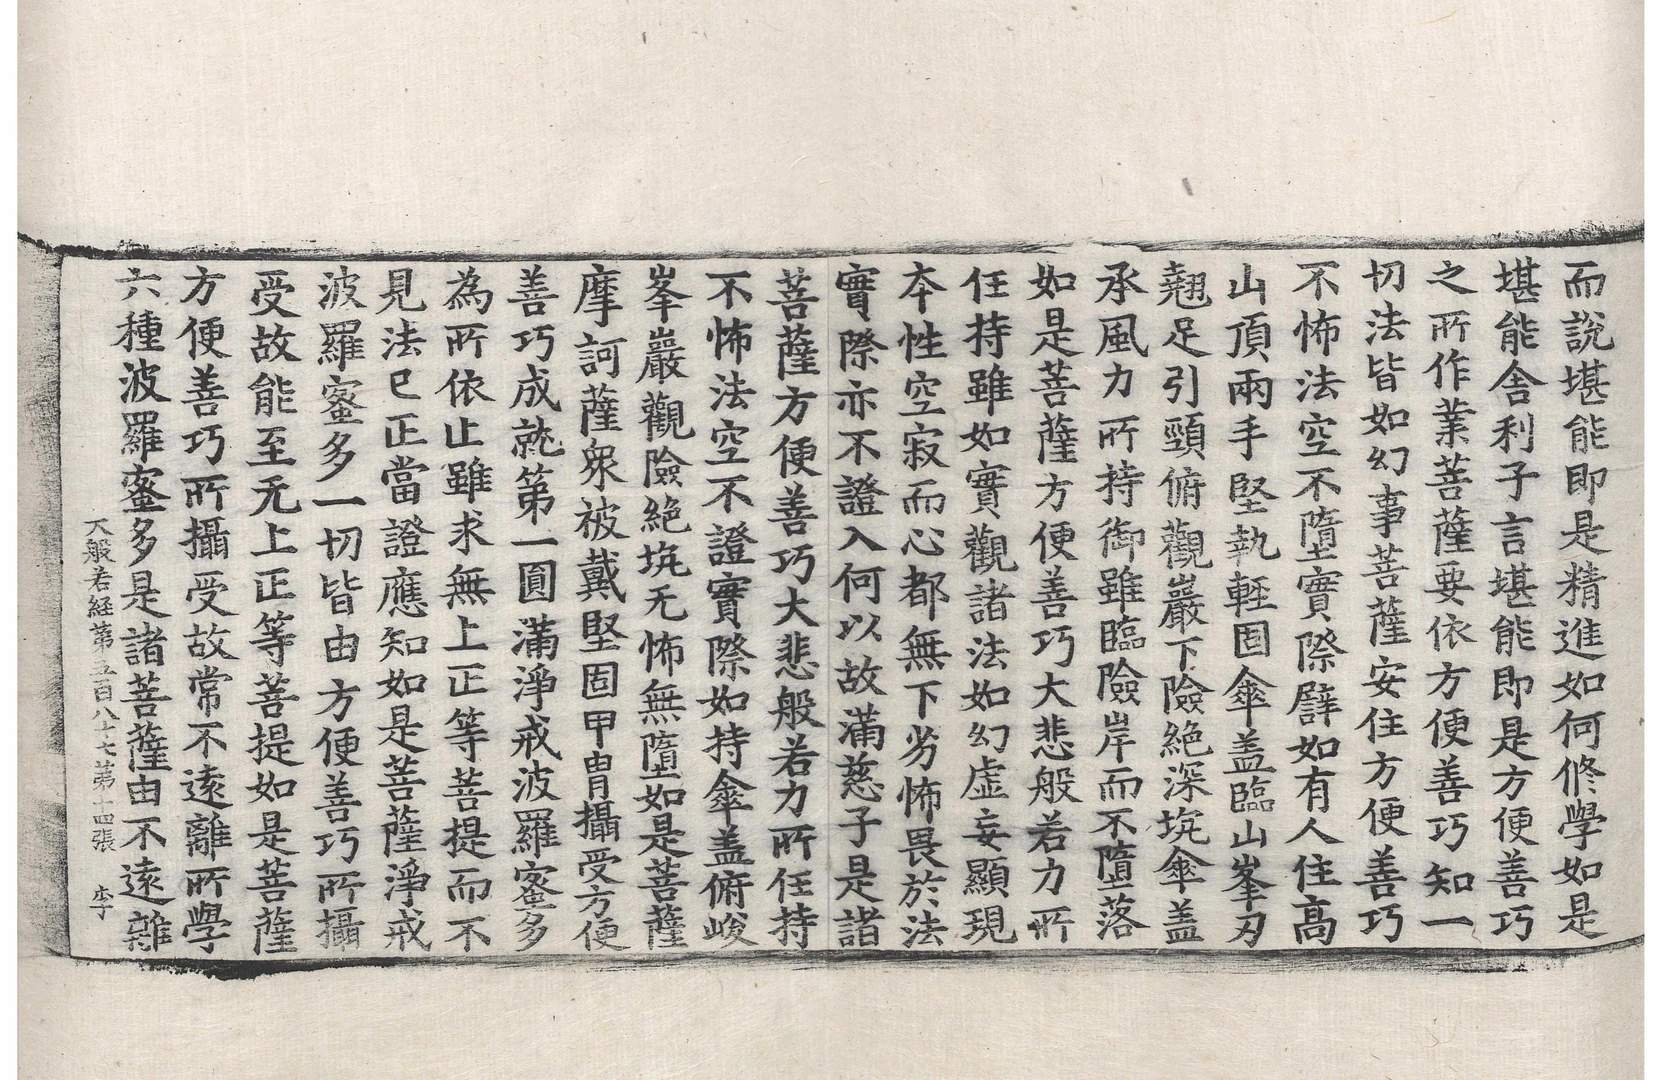 而說堪能即是精進如何修學如是
堪能舍利子言堪能即是方便善巧
之所作業菩薩要依方便善巧知一
切法皆如幻事菩薩安住方便善巧
不怖法空不墮實際譬如有人住高
山頂兩手堅執輊固傘盖臨山峯刃
翹足引頸俯觀巖下險絶深坑傘盖
承風力所持御雖臨險岸而不墮落
如是菩薩方便善巧大悲般若力所
任持雖如實觀諸法如幻虛妄顯現
夲性空寂而心都無下劣怖畏於法
實際亦不證入何以故滿慈子是諸
菩薩方便善巧大悲般若力所任持
不怖法空不證實際如持傘盖俯峻
峯巖觀險絶坑无怖無墮如是菩薩
摩訶薩衆被戴堅固甲冑攝受方便
善巧成就第一圓滿淨戒波羅蜜多
為所依止雖求無上正等菩提而不
見法已正當證應知如是菩薩淨戒
波羅蜜多一切皆由方便善巧所攝
受故能至无上正等菩提如是菩薩
方便善巧所攝受故常不遠離所學
六種波羅蜜多是諸菩薩由不遠離
大般若経第五百八十七第十四張 李